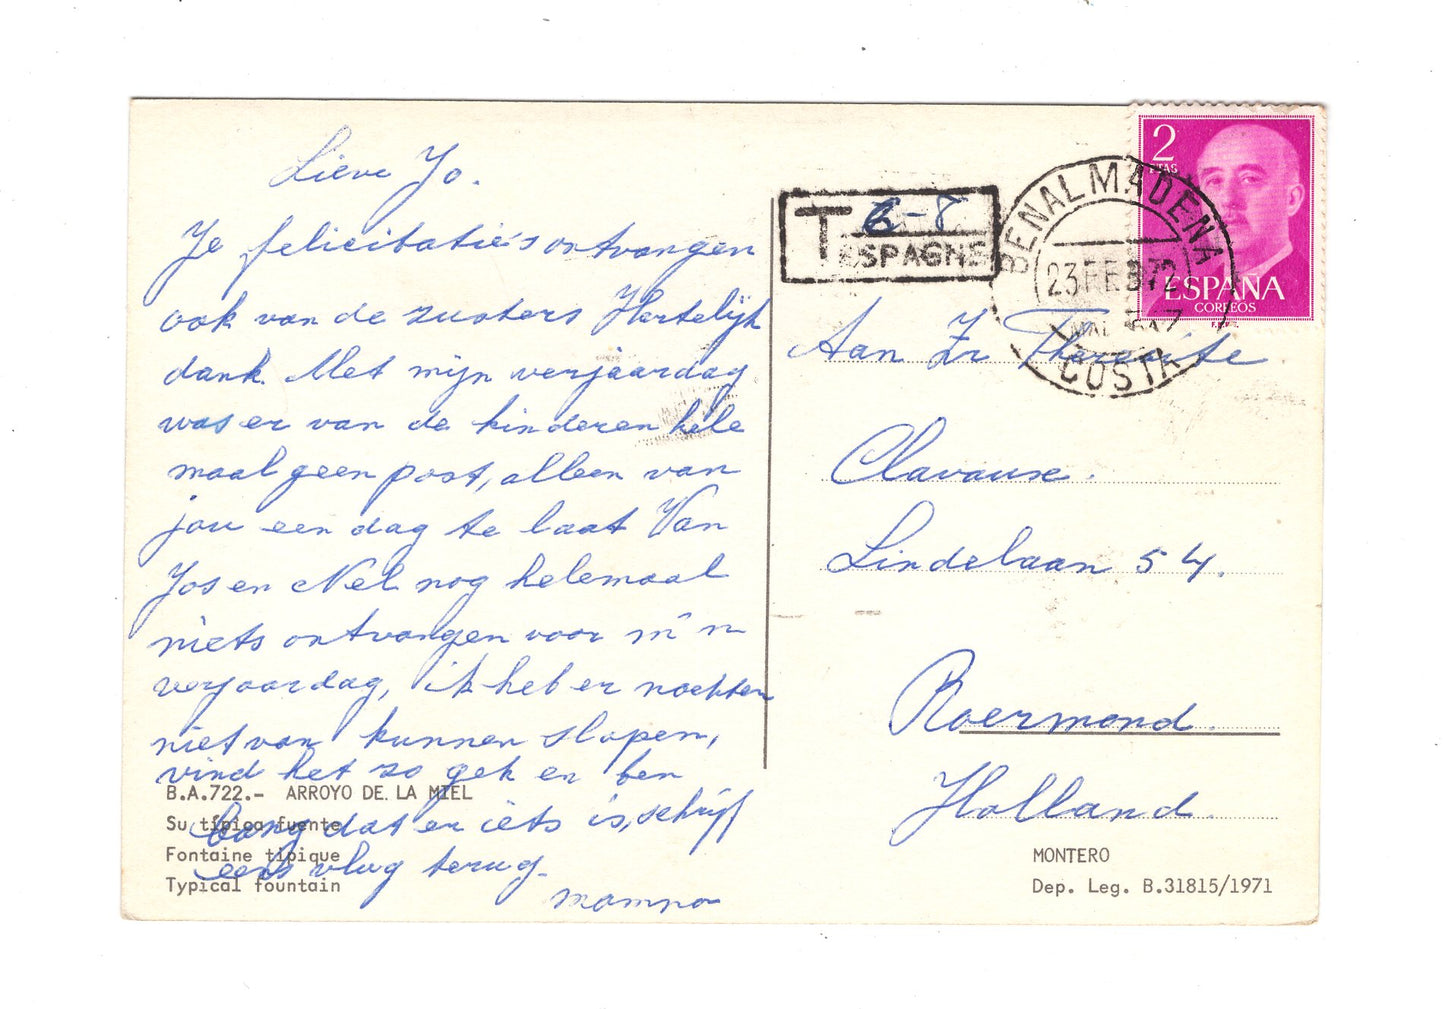 Lieve Jo.
Je felicitatie's ontvangen
ook van de zusters Hertelijk
dank. Met mijn verjaardag
was er van de kinderen hele
maal geen post, alleen van
jou een dag te laat Van
Jos en Nel nog helemaal
niets ontvangen voor m'n
verjaardag, ik heb er nachten
niet van kunnen slapen,
vind het zo gek en ben
bang dat er iets is, schrijf
eens vlug terug.
mamma
B.A.722.- ARROYO DE LA MIEL
Su típica fuente
Fontaine tipique
Typical fountain
T 6-8
ESPAGNE
BENALMADENA
23 FEB 72
COSTA
2
PTAS
ESPAÑA
CORREOS
Aan Zr
Clavaux.
Lindelaan 54.
Roermond.
Holland.
MONTERO
Dep. Leg. B.31815/1971